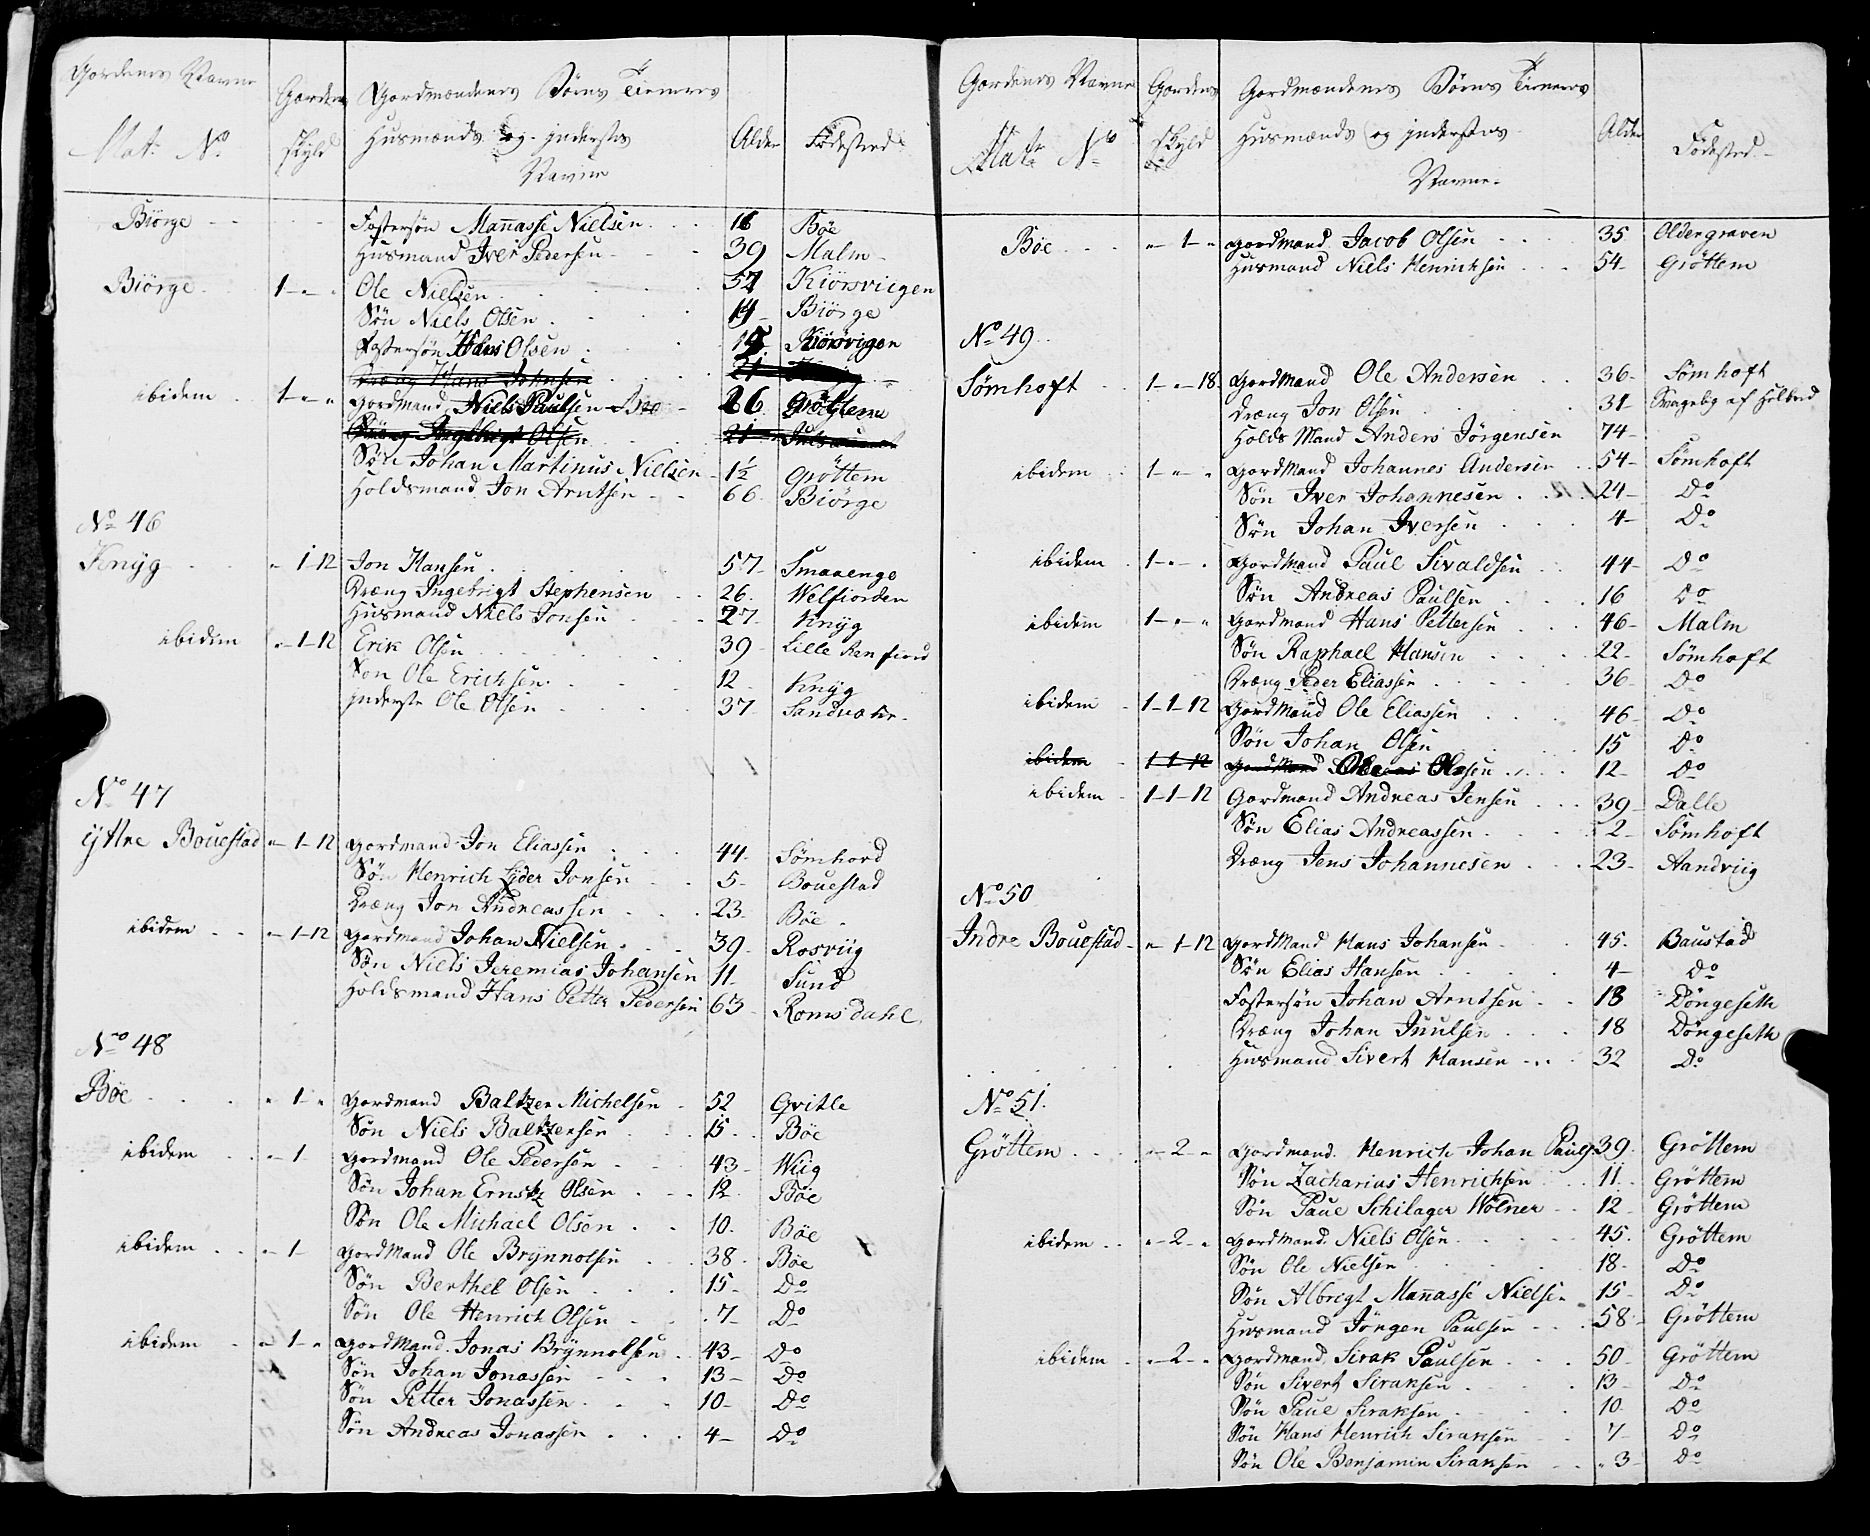 Gordenes Navne Gordens Gordmændenes Börns Tieneres
Mat: No skyld Husmænds og inderstes Alder Födested
Navne
Biörge Fostersön Manasse Nielsen 18 Böe
Husmand Iver Pedersen 39 Malm
Biörge 1 Ole Nielsen 52 Kiörsviigen
Sön Niels Olsen 14 Biörge
Fostersön Hans Olsen Kiörsvigen
Dræng Hans Johnsen 21
ibidem 1 Gordmand Niels Paulsen 26 Gröttem
Dræng Ingebrigt Olsen 21
Sön Johan Martinus Nielsen 1½ Gröttem
Holdsmand Jon Arntsen 66 Biörge
No 46
Knyg 1-12 Jon Hansen 57 Smaaenge
Dræng Ingebrigt Stephensen 26 Welfiorden
Husmand Niels Jonsen 27 Knyg
ibidem 1-12 Erik Olsen 39 Lille Ranfiord
Sön Ole Erichsen 12 Knyg
inderste Ole Olsen 37 Sandvahr
No 47
Yttre Bouestad 1-12 Gordmand Jon Eliassen 44 Sömhovd
Sön Henrich Lyder Jonsen 5 Bouestad
Dræng Jon Andreassen 23 Böe
ibidem 1-12 Gordmand Johan Nielsen 39 Rosviig
Sön Niels Jeremias Johansen 11 Sund
Holdsmand Hans Petter Pedersen 63 Romsdahl
No 48
Böe 1 Gordmand Baltzer Michelsen 52 Qvitle
Sön Niels Baltzersen 15 Böe
ibidem 1 Gordmand Ole Pedersen 43 Wiig
Sön Johan Ernstz Olsen 12 Böe
Sön Ole Michael Olsen 10 Böe
ibidem 1 Gordmand Ole Brynnolsen 38 Böe
Sön Berthel Olsen 15 Do
Sön Ole Henrich Olsen 7 Do
ibidem 1 Gordmand Jonas Brynnolsen 43 Do
Sön Johan Jonassen 13 Do
Sön Petter Jonassen 10 Do
Sön Andreas Jonassen 4 Do
Gordenes Navne Gordens Gordmændenes Börns Tieneres
Mat: No skyld Husmænds og inderstes Alder Födested
Navne
Böe 1 Gordmand Jacob Olsen 35 Oldergraven
Husmand Niels Henrichsen 54 Gröttem
No 49
Sömhoft 1-18 Gordmand Ole Andersen 36 Sömhoft
Dræng Jon Olsen 31
Holds Mand Anders Jörgensen 74
ibidem 1 Gordmand Johannes Andersen 54 Sömhoft
Sön Iver Johannesen 24 Do
Sön Johan Iversen 4 Do
ibidem 1 Gordmand Paul Sivaldsen 44 Do
Sön Andreas Paulsen 16 Do
ibidem 1 Gordmand Hans Pettersen 46 Malm
Sön Raphael Hansen 22 Sömhoft
Dræng Peder Eliassen 36 Do
ibidem 1-1-12 Gordmand Ole Eliassen 46 Do
Sön Johan Olsen 15 Do
ibidem 1-1-12 Gordmand Olsen 12 Do
ibidem 1-1-12 Gordmand Andreas Jensen 39 Dalle
Sön Elias Andreassen 2 Sömhoft
Dræng Jens Johannesen 23 Aandviig
No 50
Indre Bouestad 1-12 Gordmand Hans Johansen 45 Baustad
Sön Elias Hansen 4 Do
Fostersön Johan Arntsen 18 Döngeseth
Dræng Johan Juulsen 18 Döngeseth
Husmand Sivert Hansen 32 Do
No 51
Gröttem 2 Gordmand Henrich Johan Pauls 39 Gröttem
Sön Zacharias Henrichsen 11 Gröttem
Sön Paul Schilager Wölner 12 Gröttem
ibidem 2 Gordmand Niels Olsen 45 Gröttem
Sön Ole Nielsen 18 Do
Sön Albregt Manasse Nielsen 15 Do
Husmand Jörgen Paulsen 58 Gröttem
ibidem 2 Gordmand Sirak Paulsen 50 Gröttem
Sön Sivert Siraksen 13 Do
Sön Paul Siraksen 10 Do
Sön Hans Henrich Siraksen 7 Do
Sön Ole Benjamin Siraksen 3 Do